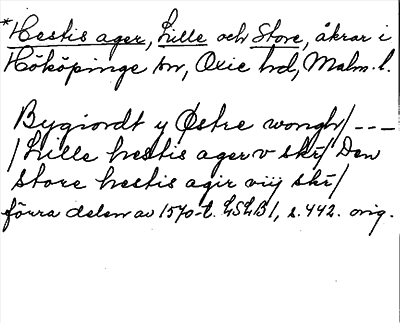 *Hestis ager, Lille och Store, åkrar i
Hököpinge sn, Oxie hd, Malm. l.
Bygiondt y Østre wongh/ ---
/Lille hestis ager v skr/ Den
store hestis agir viij skr/
förra delen av 1570-t. LSLB1, s. 442. orig.